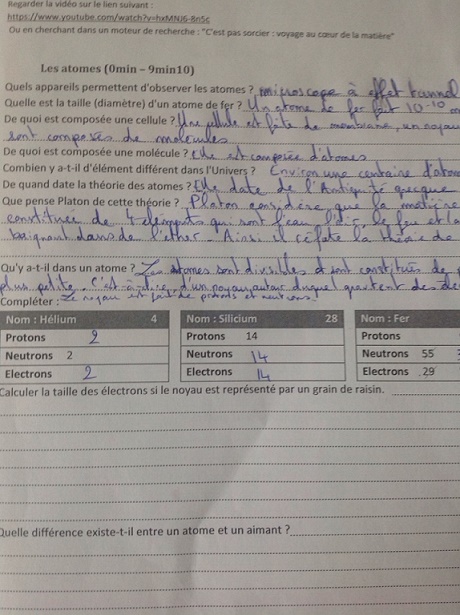 Regarder la vidéo sur le lien suivant :
https://www.youtube.com/watch?v=hxMNJ6-8n5c
Ou en cherchant dans un moteur de recherche : "C'est pas sorcier : voyage au cœur de la matière"
Les atomes (0min – 9min10)
Quels appareils permettent d'observer les atomes ? microscope à effet tunnel
Quelle est la taille (diamètre) d'un atome de fer ? Un atome de fer fait 10-10 m
De quoi est composée une cellule ? Une cellule est faite de membrane, un noyau
sont composés de molécules
De quoi est composée une molécule ? Elle est composée d'atomes
Combien y a-t-il d'élément différent dans l'Univers ? Environ une centaine d'atom
De quand date la théorie des atomes ? Elle date de l'Antiquité grecque
Que pense Platon de cette théorie ? Platon considère que la matière
constituée de 4 éléments qui sont l'eau l'air, le feu et la
baignant dans de l'éther. Ainsi il la de
Qu'y a-t-il dans un atome ? Les atomes sont divisibles et sont constitués de p
plus petite. C'est-à-dire, d'un noyau autour duquel gravitent des éle
Compléter : Le noyau est fait de protons et neutrons!
Nom : Hélium 4 Nom : Silicium 28 Nom : Fer
Protons 2 Protons 14 Protons
Neutrons 2 Neutrons 14 Neutrons 55
Electrons 2 Electrons 14 Electrons 29
Calculer la taille des électrons si le noyau est représenté par un grain de raisin.
Quelle différence existe-t-il entre un atome et un aimant ?